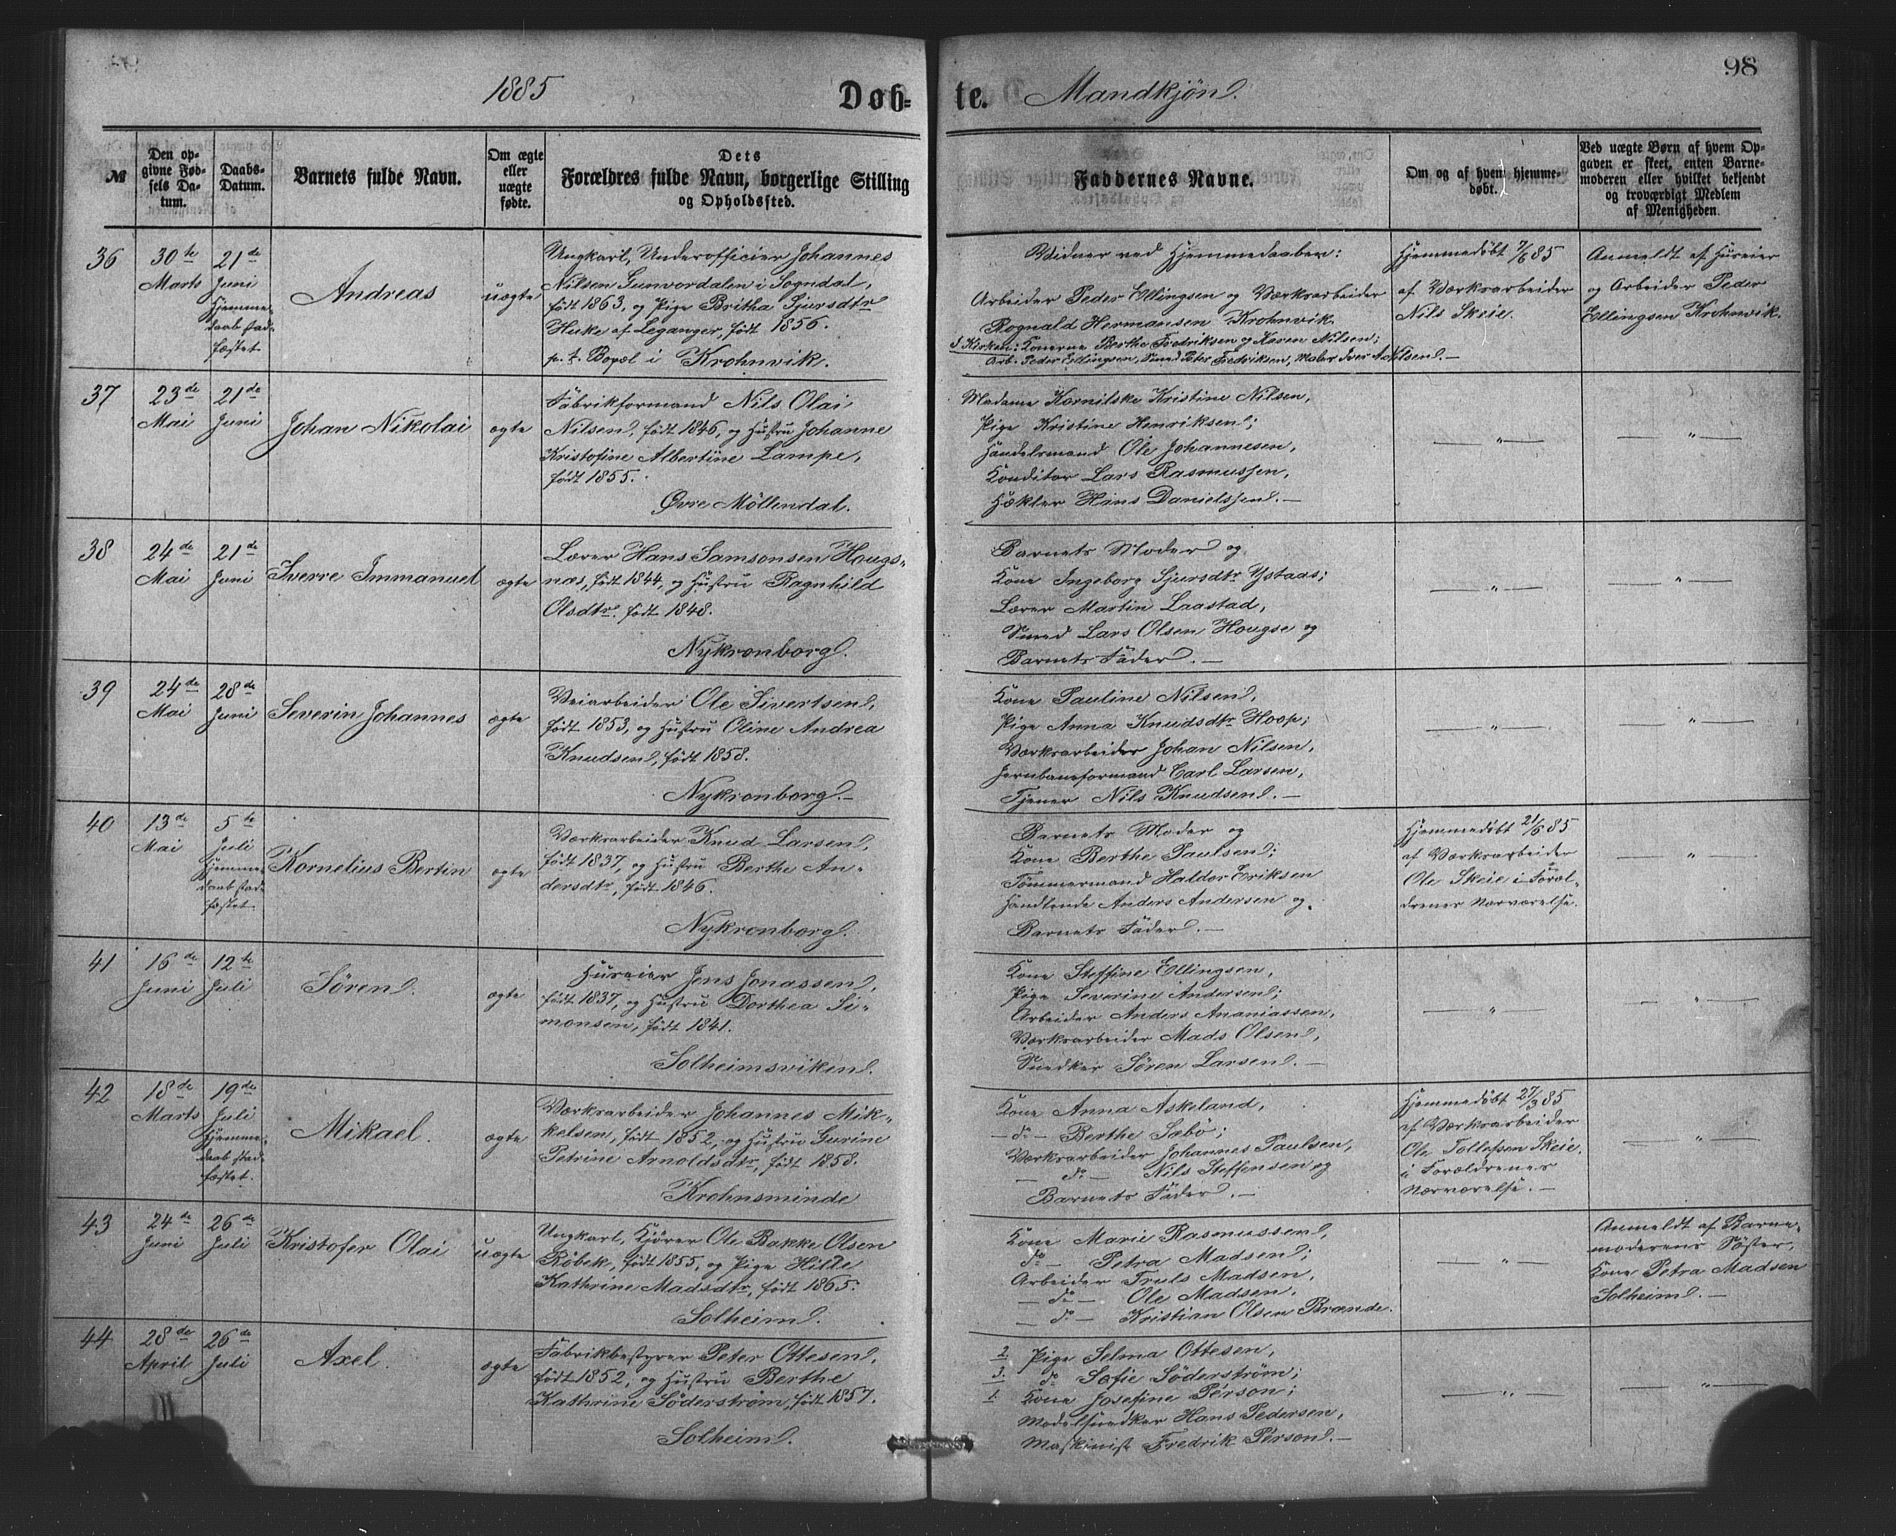 1885
Døb=
te.
Mandkjøn.
98
№
Den op-
givne Fød-
sels Da-
tum.
Daabs-
Datum.
Barnets fulde Navn.
Om ægte
eller
uægte
fødte.
Dets
Forældres fulde Navn, borgerlige Stilling
og Opholdssted.
Faddernes Navne.
Om og af hvem hjemme-
døbt.
Ved uægte Børn af hvem Op-
gaven er skeet, enten Barne-
moderen eller hvilket bekjendt
og troværdigt Medlem
af Menigheden.
36
30te
Marts
21de
Juni
Hjemme-
daab stad-
fæstet
Andreas
uægte
Ungkarl, Underofficier Johannes
Nilsen Gunvordalen i Sogndal,
født 1863, og Pige Britha Sjursdtr
Huke af Leganger, født 1856.
p. t. Bopæl i Krohnvik.
Vidner ved Hjemmedaaben:
Arbeider Peder Ellingsen og Værksarbeider
Rognald Hermansen Krohnvik.
I Kirken: Konerne Berthe Fredriksen og Karen Nilsen;
Arb: Peder Ellingsen, Smed Peter Fredriksen, Maler Iver Axelsen. —
Hjemmedøbt 7/6 85
af Værksarbeider
Nils Skeie.
Anmeldt af Huseier
og Arbeider Peder
Ellingsen Krohnvik.
37
23de
Mai
21de
Juni
Johan Nikolai
ægte
Fabrikformand Nils Olai
Nilsen, født 1846, og Hustru Johanne
Kristofine Albertine Lampe,
født 1855.
Øvre Möllendal.
Madame Kornilske Kristine Nilsen,
Pige Kristine Henriksen;
Handelsmand Ole Johannesen,
Konditor Lars Rasmussen,
Hækler Hans Danielssen. —
— " —
— " —
38
24de
Mai
21de
Juni
Sverre Immanuel
ægte
Lærer Hans Samsonsen Hougs-
næs, født 1844, og Hustru Ragnhild
Olsdtr. født 1848.
Nykronborg.
Barnets Moder og
Kone Ingeborg Sjursdtr Ystaas;
Lærer Martin Laastad,
Smed Lars Olsen Hougse og
Barnets Fader. —
— " —
— " —
39
24de
Mai
28de
Juni
Severin Johannes
ægte
Veiarbeider Ole Sivertsen,
født 1853, og Hustru Oline Andrea
Knudsen, født 1858.
Nykronborg. —
Kone Pauline Nilsen,
Pige Anna Knudsdtr Hoop;
Værksarbeider Johan Nilsen,
Jernbaneformand Carl Larsen,
Tjener Nils Knudsen. —
— " —
— " —
40
13de
Mai
5te
Juli
Hjemme-
daab stad-
fæstet
Kornelius Bertin
ægte
Værksarbeider Knud Larsen,
født 1837, og Hustru Berthe An-
dersdtr, født 1846.
Nykronborg.
Barnets Moder og
Kone Berthe Paulsen;
Tömmermand Haldor Eriksen
Handlende Anders Andersen og
Barnets Fader. —
Hjemmedøbt 21/6 85
af Værksarbeider
Ole Skeie i Foræl-
drenes Nærværelse.
— " —
41
16de
Juni
12te
Juli
Sören.
ægte
Huseier Jens Jonassen,
født 1837, og Hustru Dorthea Si-
monsen, født 1841.
Solheimsviken.
Kone Steffine Ellingsen,
Pige Severine Andersen;
Arbeider Anders Ananiassen,
Værksarbeider Mads Olsen,
Snedker Sören Larsen. —
— " —
— " —
42
18de
Marts
19de
Juli
Hjemme-
daab stad-
fæstet.
Mikael.
ægte
Værksarbeider Johannes Mik-
kelsen, født 1852, og Hustru Gurine
Petrine Arnoldsdtr, født 1858.
Krohnsminde
Kone Anna Askeland,
— do — Berthe Sæbö;
Værksarbeider Johannes Paulsen,
— do — Nils Steffensen og
Barnets Fader. —
Hjemmedøbt 27/3 85
af Værksarbeider
Ole Tollefsen Skeie
i Forældrenes
Nærværelse. —
— " —
43
24de
Juni
26de
Juli
Kristofer Olai
uægte
Ungkarl, Kjører Ole Bakke Olsen
Röbek, født 1855, og Pige Hilde
Kathrine Madsdtr, født 1865.
Solheim.
Kone Marie Rasmussen,
do — Petra Madsen;
Arbeider Truls Madsen,
— do — Ole Madsen,
— do — Kristian Olsen Brænde.
— " —
Anmeldt af Barne-
moderens Söster,
Kone Petra Madsen
Solheim. —
44
28de
April
26de
Juli
Axel.
ægte
Fabrikbestyrer Peter Ottesen,
født 1852, og Hustru Berthe
Kathrine Söderström, født 1857.
Solheim.
2. Pige Selma Ottesen,
3. do Sofie Söderström;
1. Kone Josefine Person;
Modelsnedker Hans Pedersen,
Maskinist Fredrik Person. —
— " —
— " —